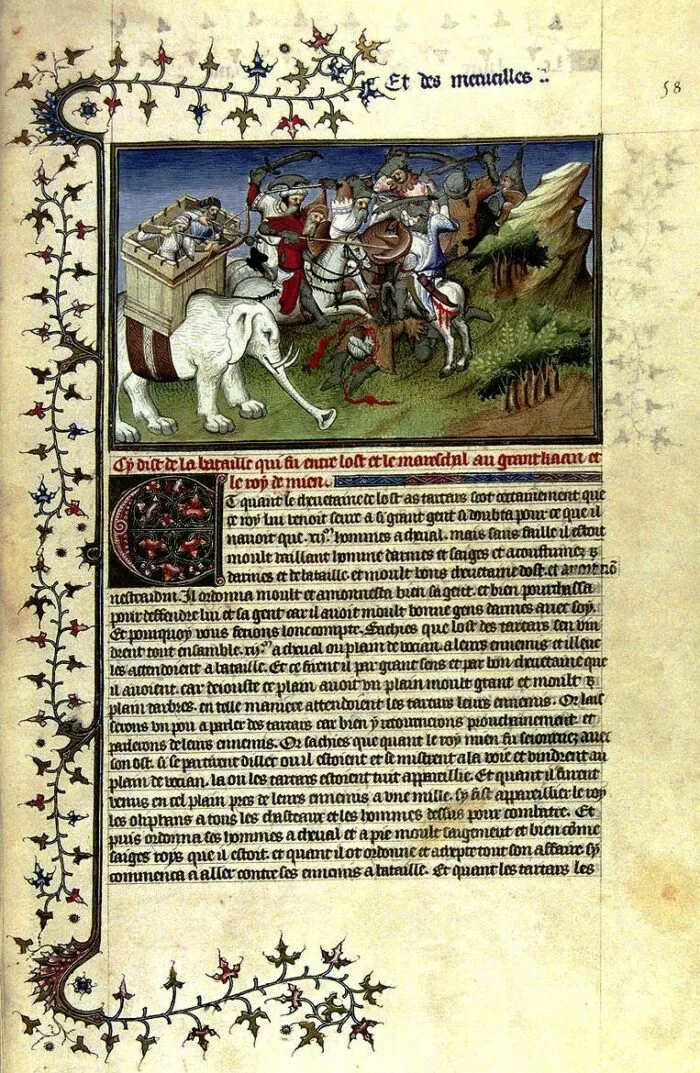 Et des merueilles :.
58
Cy dist de la bataille qui fu entre lost et le mareschal au grant kaan et
le roy de mien.
Et quant le cheuetaine de lost as tartars scot certainement que
ce roy lui venoit seure a si grant gent si doubta pour ce que il
nauoit que .xii.m hommes a cheual. mais sans faille il estoit
moult vaillant homme darmes et saiges et acoustumez
darmes et de bataille. et moult bons cheuetaine dost. et auoit nō
nestraidin. Il ordonna moult et amonnesta bien sa gent. et bien pourchassa
pour deffendre lui et sa gent car il auoit moult bonne gens darmes auec soy.
Et pourquoy vous feroins lonc compte. Sachies que lost des tartars sen vin
drent tout ensamble .xij.m a cheual ou plain de vocian. a leurs ennemis et illeuc
les attendoient a bataille. Et ce firent il par grant sens et par bon cheuetaine que
il auoient. car deiouste ce plain auoit vn plain moult grant et moult
plain darbres. en telle maniere attendoient les tartars leurs ennemis. Or lais
serons vn pou a parler des tartars car bien y retournerons prouchainement. et
parlerons de leurs ennemis. Or sachies que quant le roy mien fu seiournez auec
son ost. si se partirent dillec ou il estoient et se mistrent a la voie et vindrent au
plain de vocian. la ou les tartars estoient tuit appareillie. Et quant il furent
venus en cel plain pres de leurs ennemis a vne mille. sy fist appareillier le roy
les oliphans a tous les chasteaux et les hommes dessus pour combatre. Et
puis ordonna ses hommes a cheual et a pie moult saigement et bien cōme
saiges roys que il estoit. et quant il ot ordonne et tout son affaire sy
commenca a aller contre ses ennemis a bataille. Et quant les tartars les